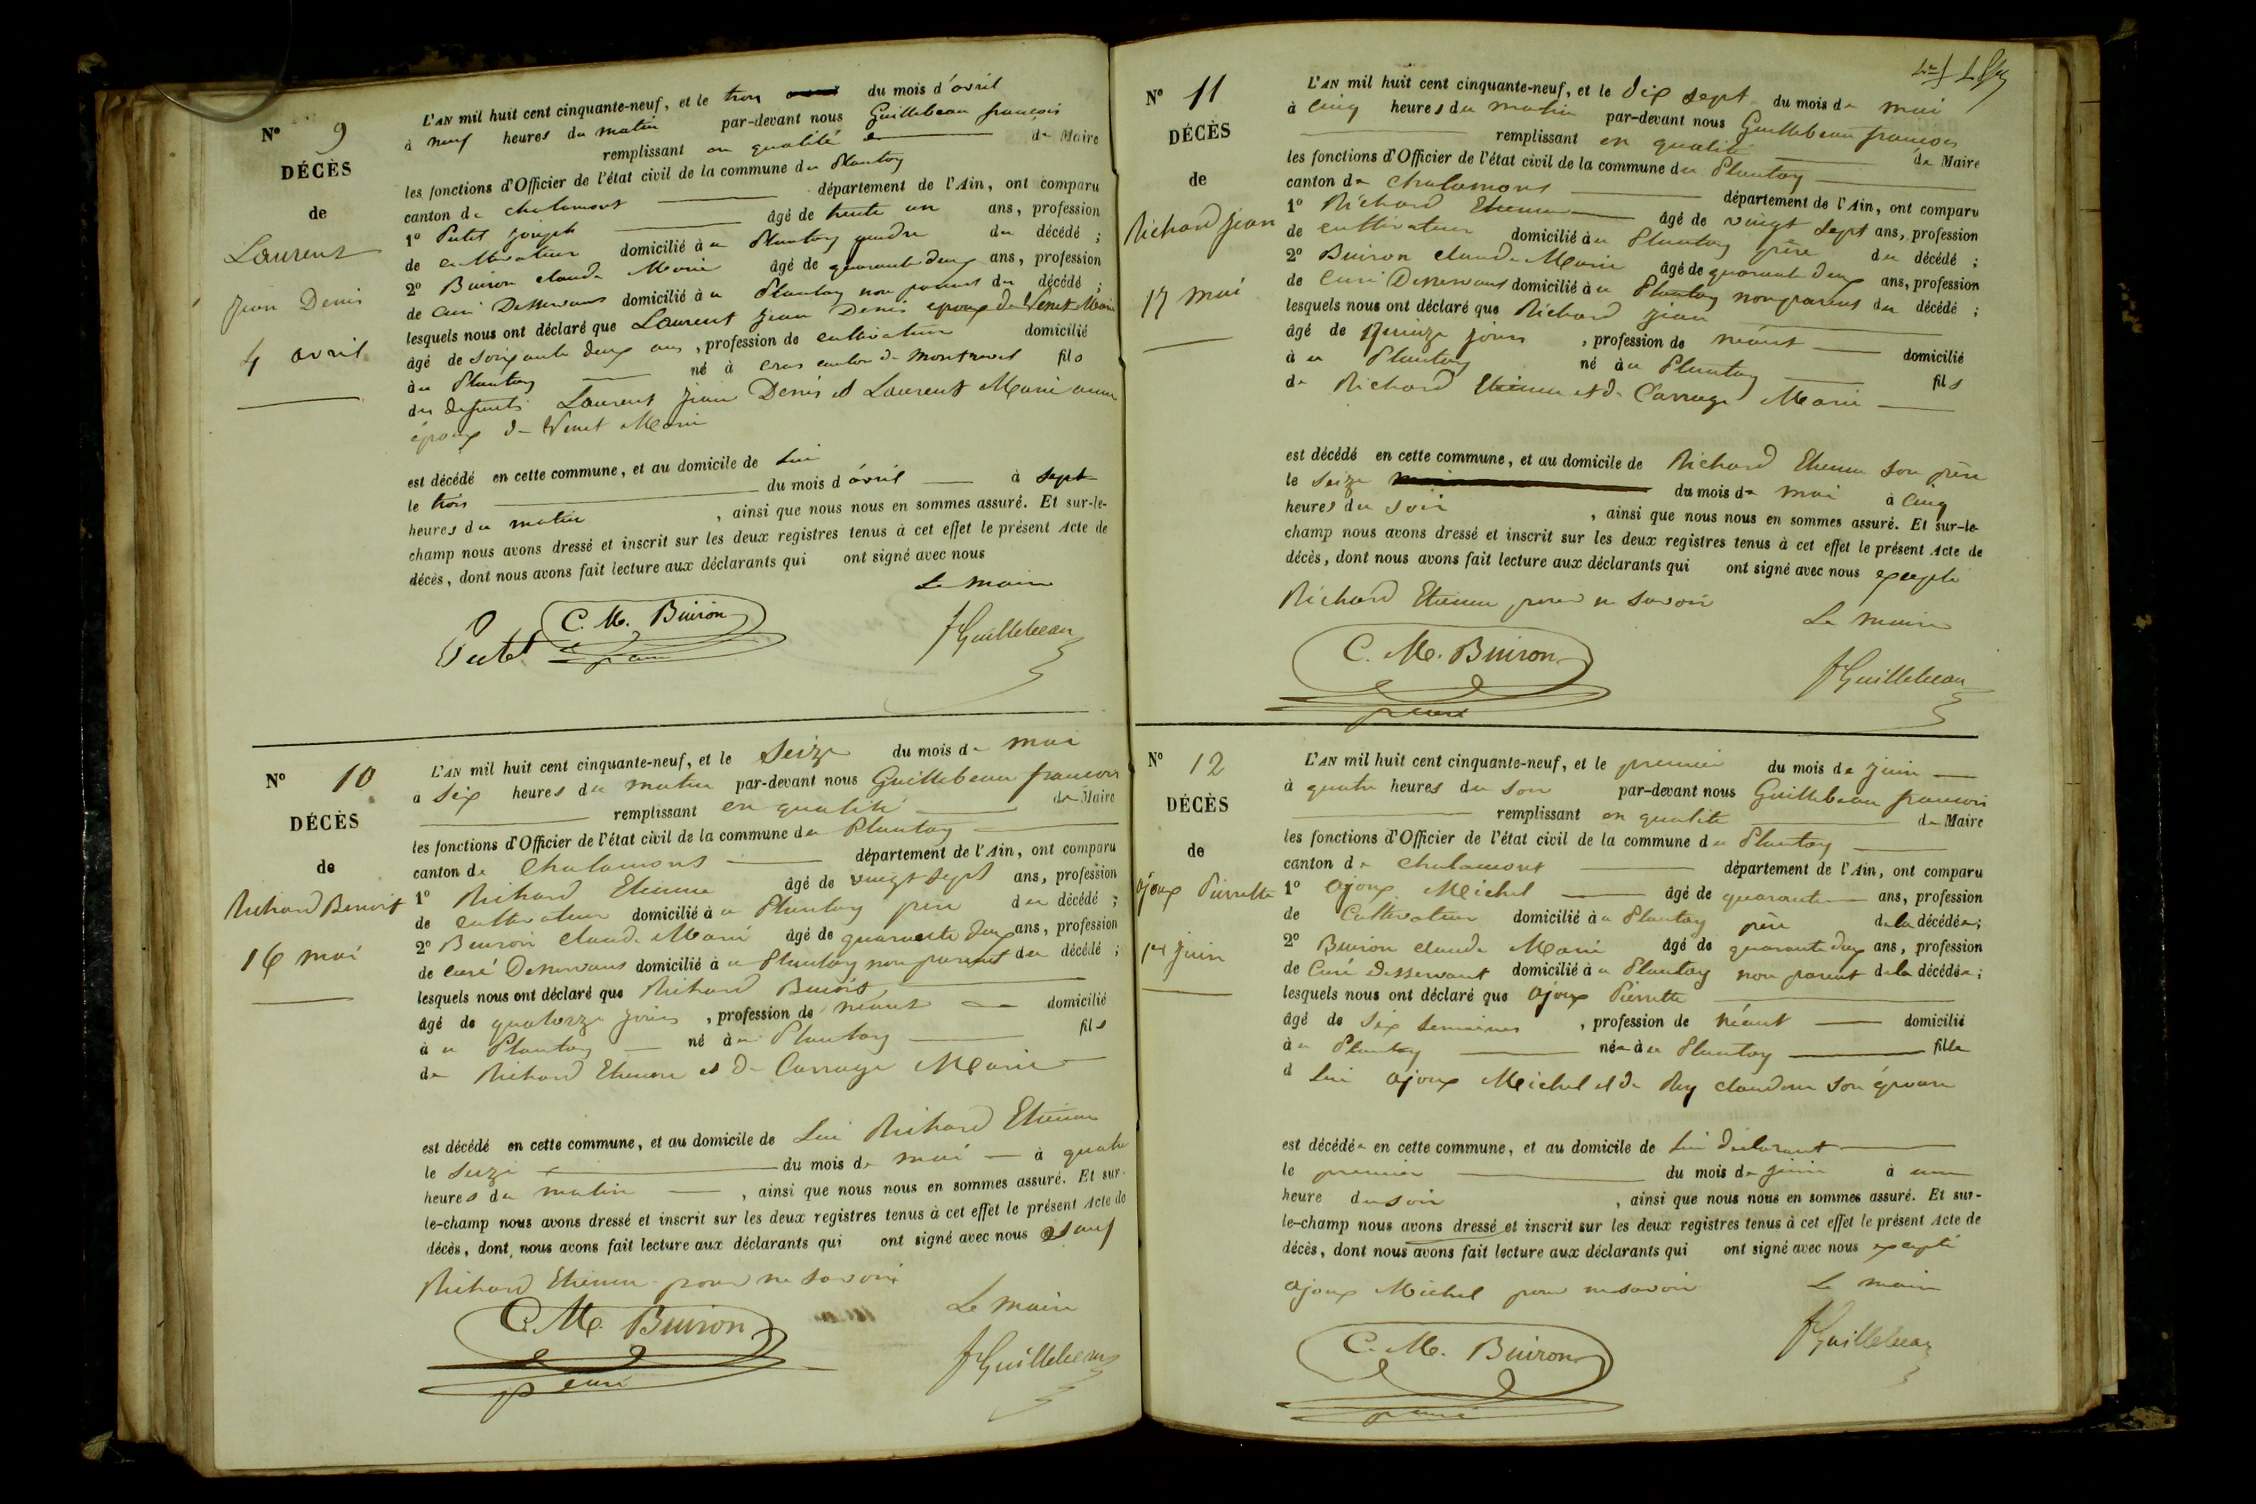 N° 9
DÉCÈS
de
Laurent
Jean Denis
4 avril
L'AN mil huit cent cinquante-neuf, et le trois du mois d'avril
à neuf heures du matin par-devant nous Guillebeau françois
remplissant en qualité de Maire
les fonctions d'Officier de l'état civil de la commune du Plantay
canton de chalamont département de l'Ain, ont comparu
1° Putet joseph âgé de trente un ans, profession
de cultivateur domicilié à u Plantay gendre du décédé ;
2° Buiron claude Marie âgé de quarante deux ans, profession
de curé Desservant domicilié à u Plantay non parent du décédé ;
lesquels nous ont déclaré que Laurent jean Denis epoux de Venet Marie
âgé de soixante deux ans, profession de cultivateur domicilié
à u Plantay né à cras canton de montrevel fils
des defunts Laurent jean Denis et Laurent Marie anne
époux de Venet Marie
est décédé en cette commune, et au domicile de lui
le trois du mois d'avril à sept
heures du matin, ainsi que nous nous en sommes assuré. Et sur-le-
champ nous avons dressé et inscrit sur les deux registres tenus à cet effet le présent Acte de
décès, dont nous avons fait lecture aux déclarants qui ont signé avec nous
Le maire
Putet C. M. Buiron fGuillebeau
curé
N° 10
DÉCÈS
de
Richard Benoit
16 mai
L'AN mil huit cent cinquante-neuf, et le Seize du mois de mai
à six heures du matin par-devant nous Guillebeau francois
remplissant en qualité de Maire
les fonctions d'Officier de l'état civil de la commune du Plantay
canton de Chalamont département de l'Ain, ont comparu
1° Richard Etienne âgé de vingt sept ans, profession
de cultivateur domicilié à u Plantay père du décédé ;
2° Buiron claude Marie âgé de quarante deux ans, profession
de curé Desservant domicilié à u Plantay non parent du décédé ;
lesquels nous ont déclaré que Richard Benoit
âgé de quatorze jours, profession de néant domicilié
à u Plantay né à u Plantay fils
de Richard Etienne et de Carrage Marie
est décédé en cette commune, et au domicile de lui Richard Etienne
le seize du mois de mai à quatre
heures du matin, ainsi que nous nous en sommes assuré. Et sur-
le-champ nous avons dressé et inscrit sur les deux registres tenus à cet effet le présent Acte de
décès, dont nous avons fait lecture aux déclarants qui ont signé avec nous sauf
Richard Etienne pour ne savoir
Le maire
C. M. Buiron fGuillebeau
curé
N° 11
DÉCÈS
de
Richard Jean
17 mai
L'AN mil huit cent cinquante-neuf, et le dix sept du mois de mai
à cinq heures du matin par-devant nous Guillebeau francois
remplissant en qualité de Maire
les fonctions d'Officier de l'état civil de la commune du Plantay
canton de chalamont département de l'Ain, ont comparu
1° Richard Etienne âgé de vingt sept ans, profession
de cultivateur domicilié à u Plantay père du décédé ;
2° Buiron claude Marie âgé de quarante deux ans, profession
de curé Desservant domicilié à u Plantay non parent du décédé ;
lesquels nous ont déclaré que Richard jean
âgé de quinze jours, profession de néant domicilié
à u Plantay né à u Plantay fils
de Richard Etienne et de Carrage Marie
est décédé en cette commune, et au domicile de Richard Etienne son père
le seize du mois de mai à cinq
heures du soir, ainsi que nous nous en sommes assuré. Et sur-le-
champ nous avons dressé et inscrit sur les deux registres tenus à cet effet le présent Acte de
décès, dont nous avons fait lecture aux déclarants qui ont signé avec nous excepté
Richard Etienne pour ne savoir
Le maire
C. M. Buiron fGuillebeau
curé
N° 12
DÉCÈS
de
ajoux Pierrette
1er juin
L'AN mil huit cent cinquante-neuf, et le premier du mois de juin
à quatre heures du soir par-devant nous Guillebeau francois
remplissant en qualité de Maire
les fonctions d'Officier de l'état civil de la commune du Plantay
canton de chalamont département de l'Ain, ont comparu
1° ajoux Michel âgé de quarante ans, profession
de Cultivateur domicilié à u Plantay père de la décédée ;
2° Buiron claude Marie âgé de quarante deux ans, profession
de Curé desservant domicilié à u Plantay non parent de la décédée ;
lesquels nous ont déclaré que ajoux Pierrette
âgé de six semaines, profession de néant domicilié
à u Plantay née à u Plantay fille
d lui ajoux Michel et de Rey claudine son épouse
est décédée en cette commune, et au domicile de lui déclarant
le premier du mois de juin à une
heure du soir, ainsi que nous nous en sommes assuré. Et sur-
le-champ nous avons dressé et inscrit sur les deux registres tenus à cet effet le présent Acte de
décès, dont nous avons fait lecture aux déclarants qui ont signé avec nous excepté
ajoux Michel pour ne savoir
Le maire
C. M. Buiron fGuillebeau
curé